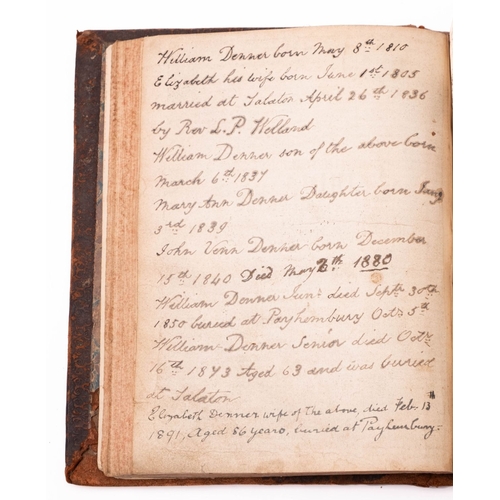 William Denner born May 8th 1810
Elizabeth his wife born June 1st 1805
married at Talaton April 26th 1836
by Rev L. P. Welland
William Denner son of the above born
March 6th 1837
Mary Ann Denner Daughter born
3rd 1839
John Venn Denner born December
15th 1840 Died May th 1880
William Denner Junr died Septr 30th
1850 buried at Payhembury Octr 5th
William Denner Senior died Octr
16th 1873 Aged 63 and was buried
at Talaton
Elizabeth Denner wife of the above, died Feb. 13
1891, Aged 86 years, buried at Payhembury.